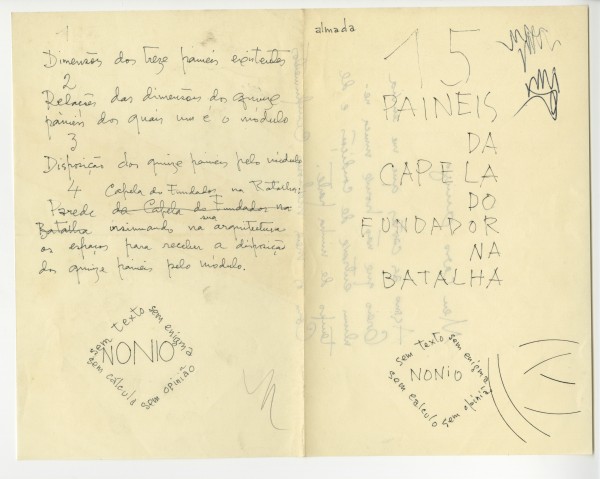 1
Dimensões dos treze paineis existentes
2
Relações das dimensões dos quinze
paineis dos quais um é o modulo
3
Disposição dos quinze paineis pelo modulo
4 Capela do Fundador na Batalha:
Parede da Capela do Fundador na
Batalha insinuando na sua arquitectura
os espaços para receber a disposição
dos quinze paineis pelo módulo.
sem texto sem enigma
NONIO
sem cálculo sem opinião
almada
15
PAINEIS
DA
CAPELA
DO
FUNDADOR
NA
BATALHA
sem texto sem enigma
NONIO
sem cálculo sem opinião